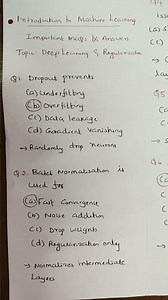 • Introduction to Machine Learning
Important MCQs & Answers
Topic: Deep Learning & Regularization
Q1. Dropout prevents
(a) Underfitting
(b) Overfitting
(c) Data leakage
(d) Gradient Vanishing
→ Randomly drop neurons
Q2. Batch Normalization is
used for
(a) Fast Convergence
(b) Noise addition
(c) Drop weights
(d) Regularization only
→ Normalizes intermediate
Layers
Q5
Q6.